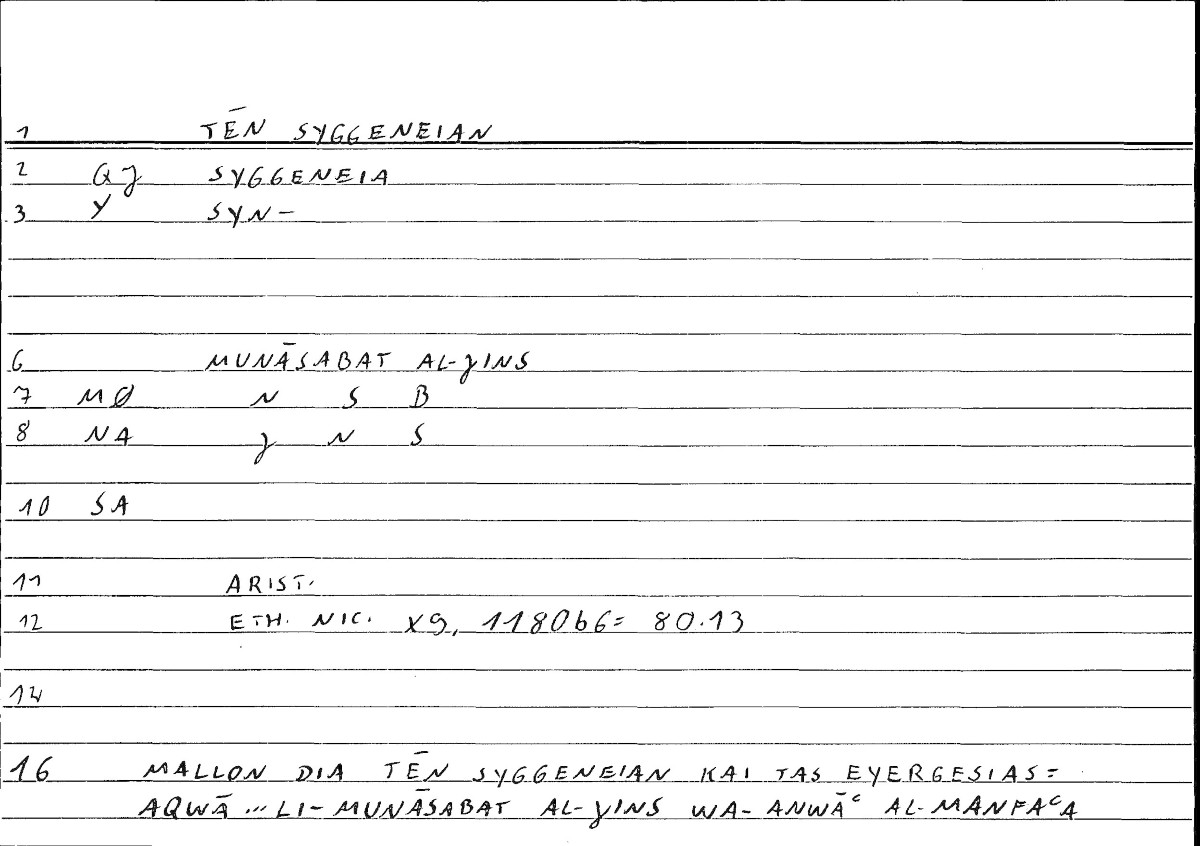 1 TĒN SYGGENEIAN
2 QJ SYGGENEIA
3 Y SYN-
6 MUNĀSABAT AL-ǧINS
7 MØ N S B
8 NA ǧ N S
10 SA
11 ARIST.
12 ETH. NIC. X9, 1180b6= 80.13
14
16 MALLON DIA TĒN SYGGENEIAN KAI TAS EYERGESIAS=
AQWĀ ... LI-MUNĀSABAT AL-ǧINS WA-ANWĀᶜ AL-MANFAᶜA